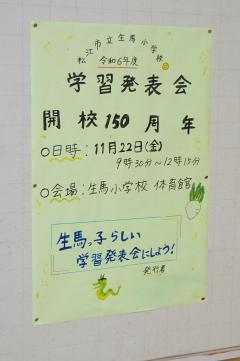 松江市立生馬小学校
令和6年度
学習発表会
開校150周年
○日時:11月22日(金)
9時30分～12時15分
○会場:生馬小学校 体育館
生馬っ子らしい
学習発表会にしよう!
発行者